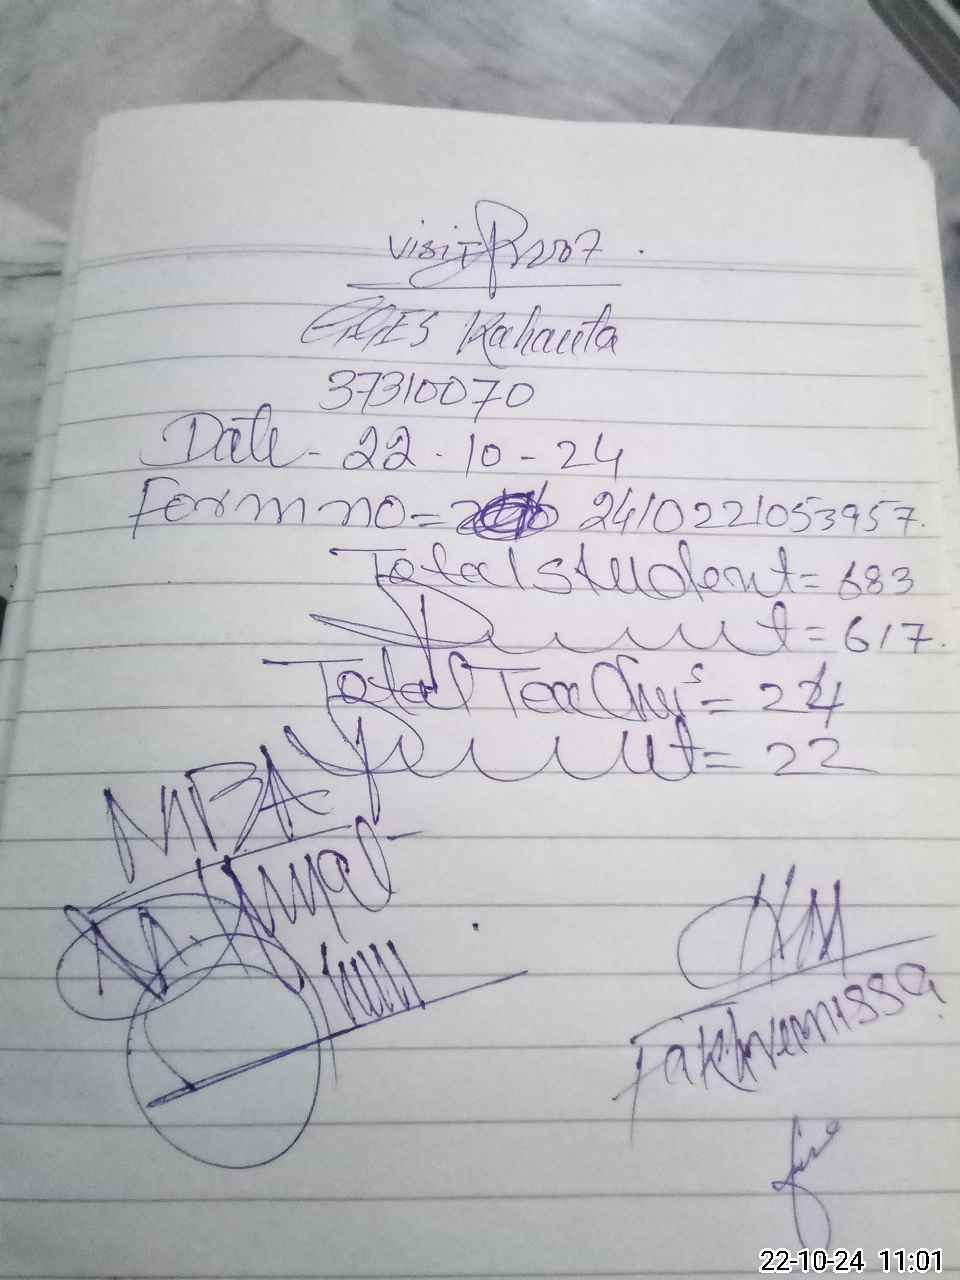 Visit Proof
GGES Kahauta
37310070
Date - 22 - 10 - 24
Form no = 2410221053957.
Total student = 683
Present = 617.
Total Teachers = 24
Present = 22
MEA
HM
22-10-24 11:01